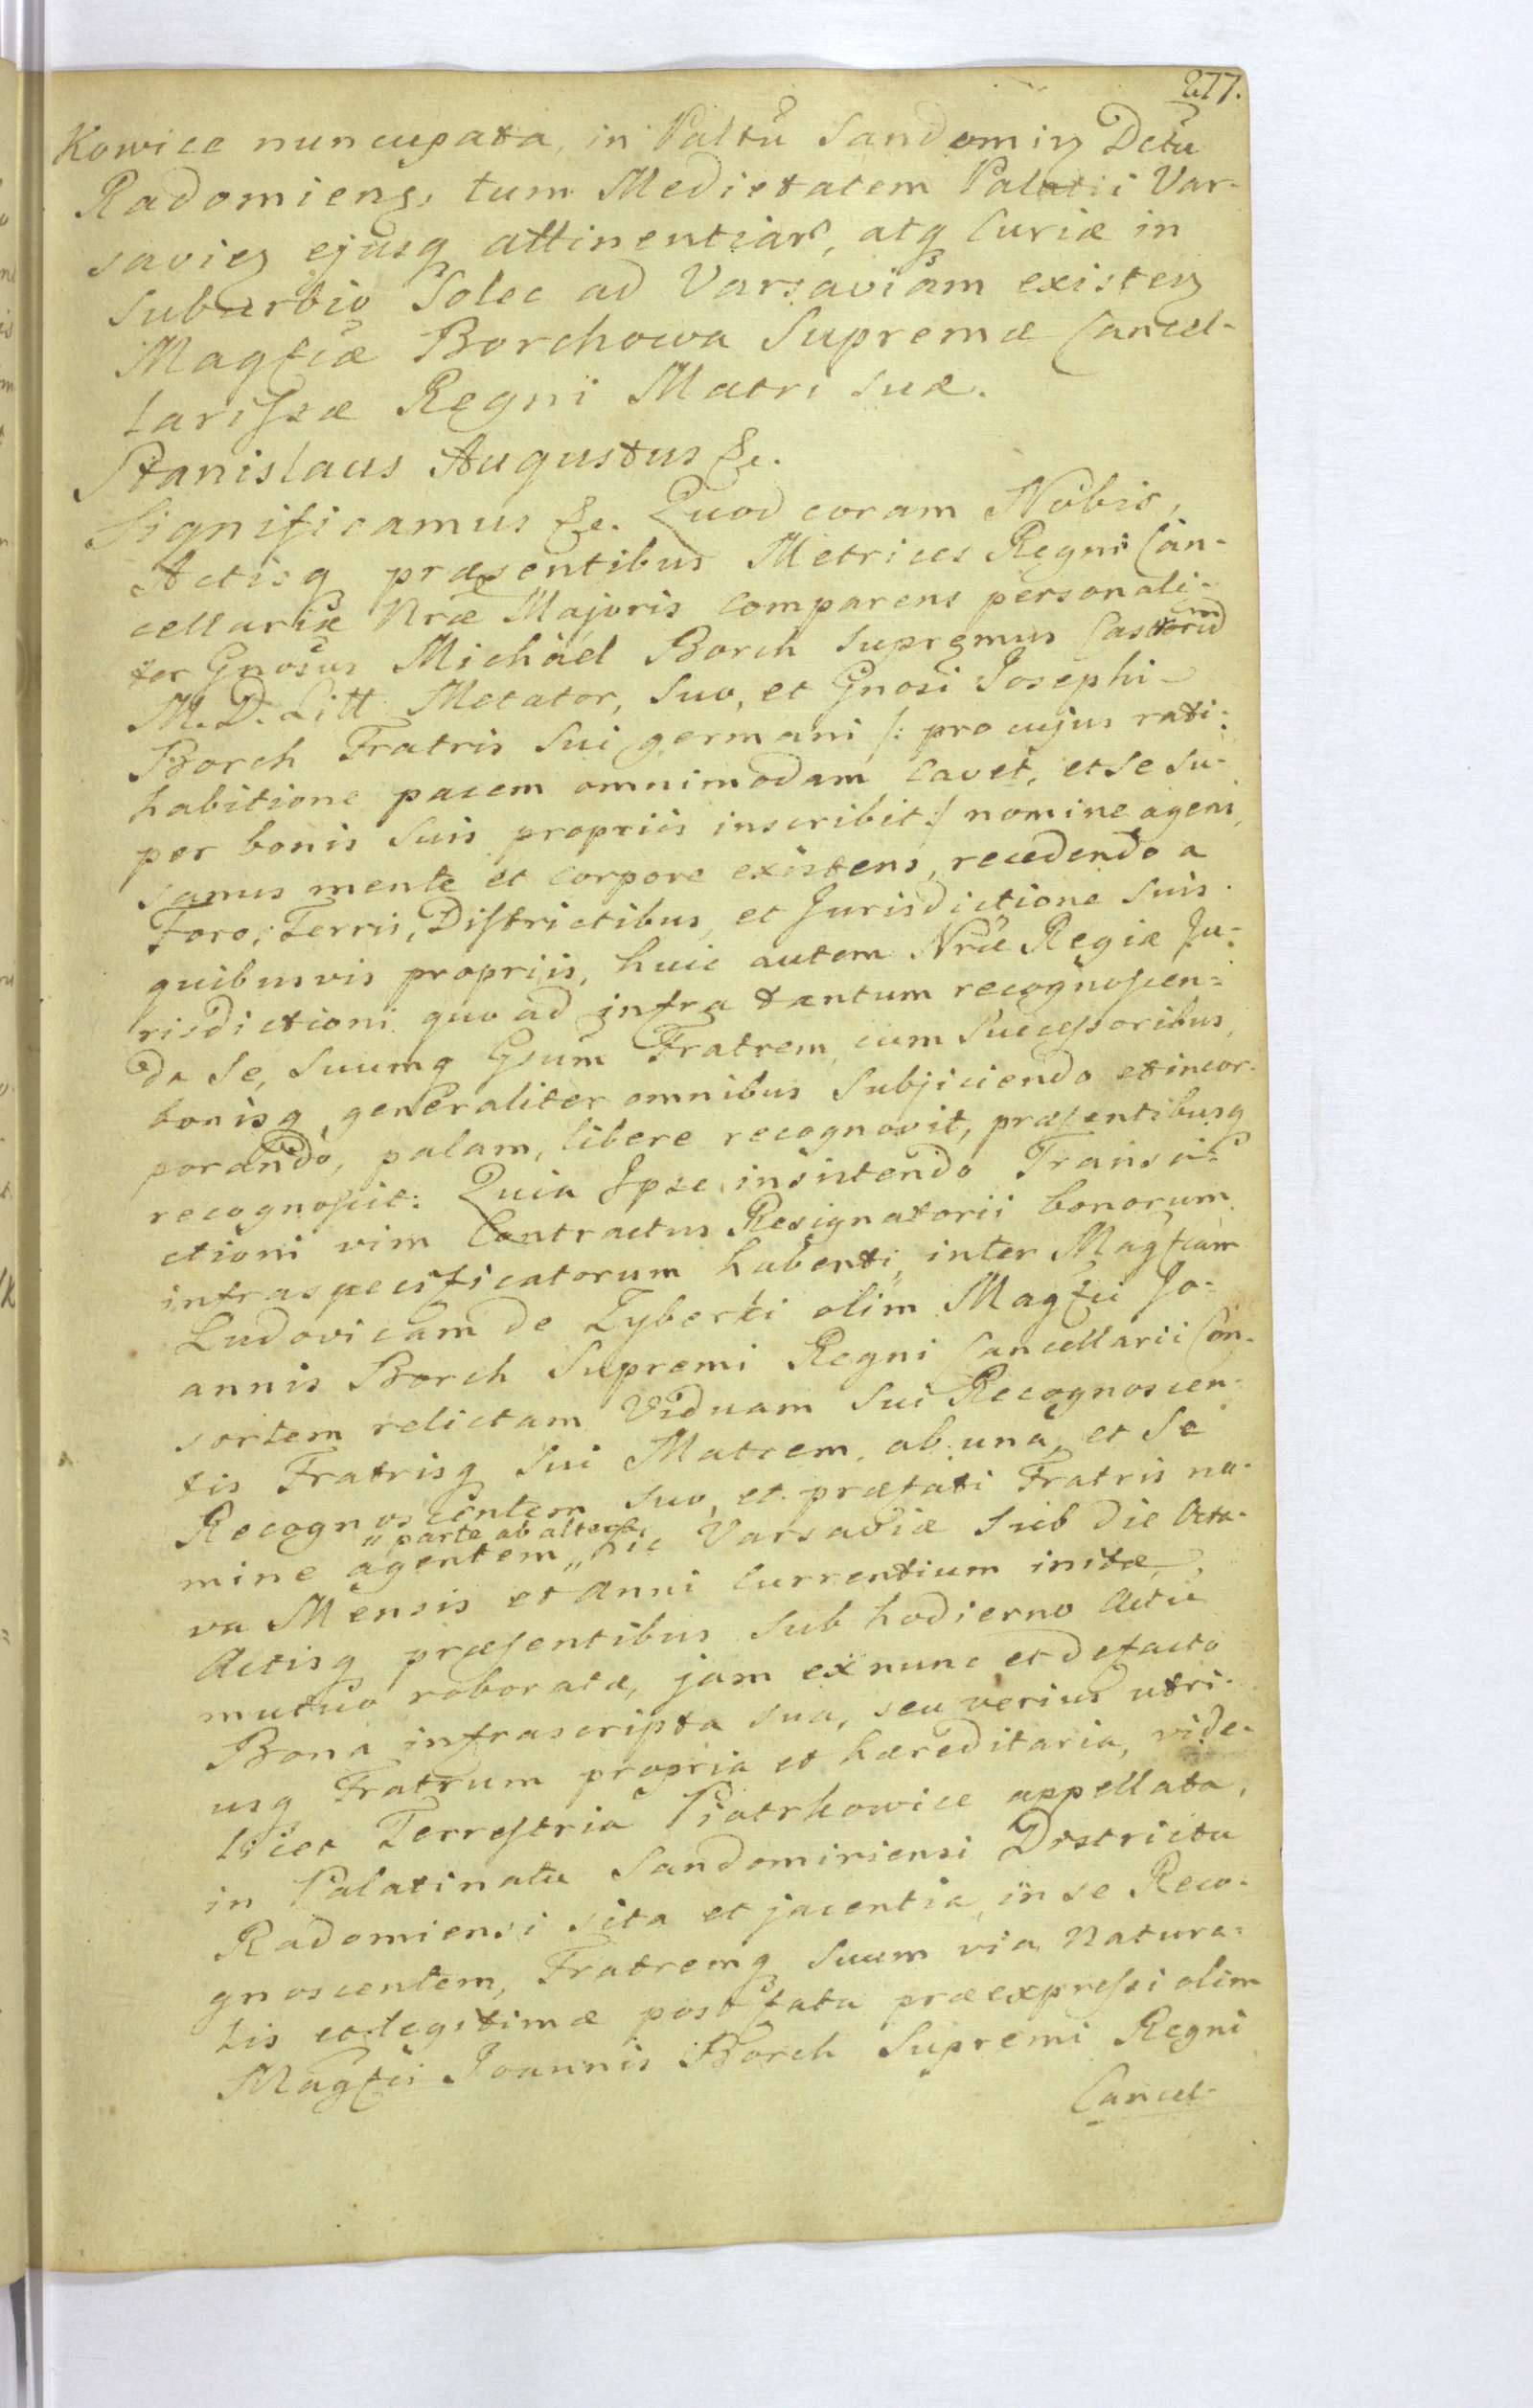 277.
Kowice nuncupata, in Paltu Sandomirz Dctu
Radomiensi, tum Medietatem Palatii Var-
saviez ejusq attinentiar, atq Curiæ in
Suburbio Solec ad Varsaviam existenz
Magfcæ Borchowa Supremæ Cancel-
larissæ Regni Matri suæ.
Stanislaus Augustus &c.
Significamus &c. Quod coram Nobis,
Actisq præsentibus Metrices Regni Can-
cellariæ Nræ Majoris comparens personali-
ter Gnosus Michael Borch Supremus
M. D. Litt. Metator, suo, et Gnosi Josephi
Borch Fratris Sui germani /: pro cujus rati-
habitione pacem omnimodam cavet, et se su-
per bonis suis propriis inscribit :/ nomine agens,
sanus mente et corpore existens, recedendo a
Foro, Terris, Districtibus, et Jurisdictione suis
quibusvis propriis, huic autem Nræ Regiæ Ju-
risdictioni quo ad infra tantum recognoscen-
da se, suumq Gsum Fratrem, cum Successoribus,
bonisq generaliter omnibus subjiciendo et incor-
porando, palam, libere recognovit, præsentibusq
recognoscit: Quia Ipse insistendo Transa-
ctioni vim Contractus Resignatorii bonorum
infraspecificatorum habenti, inter Magfcam
Ludovicam de Zyberki olim Magfci Jo-
annis Borch Supremi Regni Cancellarii Con-
sortem relictam Viduam sui Recognoscen-
tis Fratrisq sui Matrem, ab una, et se
Recognoscentem suo, et præfati Fratris no-
mine agentem " parte ab altera, " hic Varsaviæ sub die Octa-
va Mensis et Anni currentium initæ,
Actisq præsentibus sub hodierno Actu
mutuo roboratæ, jam ex nunc et de facto
Bona infrascripta sua, seu verius utri-
usq Fratrum propria et hæreditaria, vide-
licet Terrestria Piotrkowice appellata,
in Palatinatu Sandomiriensi Districtu
Radomiensi sita et jacentia, in se Reco-
gnoscentem, Fratremq suum via natura-
lis et legitimæ post fata præexpressi olim
Magfci Joannis Borch Supremi Regni
Cancel-